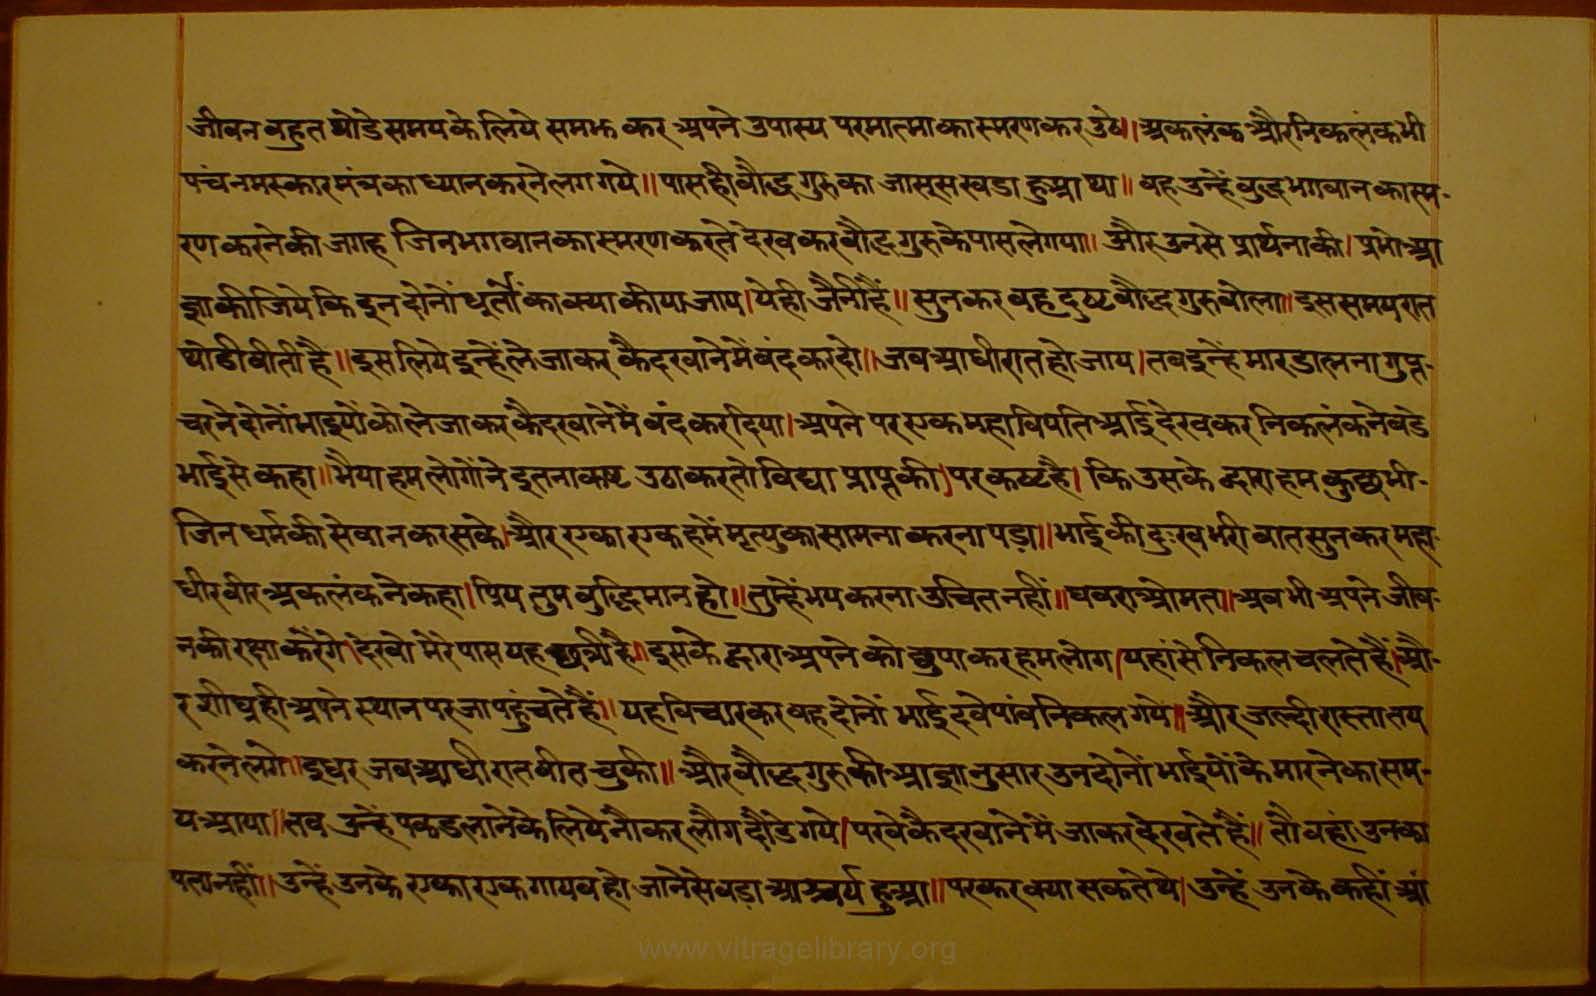 जीवन बहुत थोडे समय के लिये समझ कर अपने उपास्य परमात्मा का स्मरण कर उठे॥ अकलंक और निकलंक भी
पंच नमस्कार मंत्र का ध्यान करने लग गये॥ पास ही बौद्ध गुरु का जासूस खडा हुआ था॥ वह उन्हें बुद्ध भगवान का स्म-
रण करने की जगह जिन भगवान का स्मरण करते देख कर बौद्ध गुरु के पास ले गया॥ और उनसे प्रार्थना की। प्रभो आ
ज्ञा कीजिये कि इन दोनों धूर्तों का क्या कीया जाय। ये ही जैनी हैं॥ सुन कर वह दुष्ट बौद्ध गुरु बोला॥ इस समय रात
थोडी बीती है॥ इस लिये इन्हें ले जा कर कैद खाने में बंद कर दो॥ जब आधी रात हो जाय। तब इन्हें मार डालना गुप्त-
चर ने दोनों भाइयों को ले जा कर कैद खाने में बंद कर दिया। अपने पर एक महा विपति आई देख कर निकलंक ने बडे
भाई से कहा॥ भैया हम लोगों ने इतना कष्ट उठा कर तो विद्या प्राप्त की। पर कष्ट है। कि उसके द्वारा हम कुछ भी-
जिन धर्म की सेवा न कर सके। और एका एक हमें मृत्यु का सामना करना पड़ा॥ भाई की दुःख भरी बात सुन कर महा-
धीर वीर अकलंक ने कहा। प्रिय तुम बुद्धिमान हो॥ तुम्हें भय करना उचित नहीं॥ घबराओ मत॥ अब भी अपने जीव-
न की रक्षा करेंगे। देखो मेरे पास यह छत्री है॥ इसके द्वारा अपने को छुपा कर हम लोग। यहां से निकल चलते हैं। औ-
र शीघ्र ही अपने स्थान पर जा पहुंचते हैं॥ यह विचार कर वह दोनों भाई दबे पांव निकल गये॥ और जल्दी रास्ता तय
करने लगे॥ इधर जब आधी रात बीत चुकी॥ और बौद्ध गुरु की आज्ञानुसार उन दोनों भाइयों के मारने का सम-
य आया॥ तब उन्हें पकड लाने के लिये नौकर लौग दौडे गये। पर वे कैद खाने में जाकर देखते हैं॥ तौ वहां उनका
पता नहीं॥ उन्हें उनके एका एक गायब हो जाने से बड़ा आश्चर्य हुआ॥ पर कर क्या सकते थे। उन्हें उनके कहीं आं
www.vitragelibrary.org